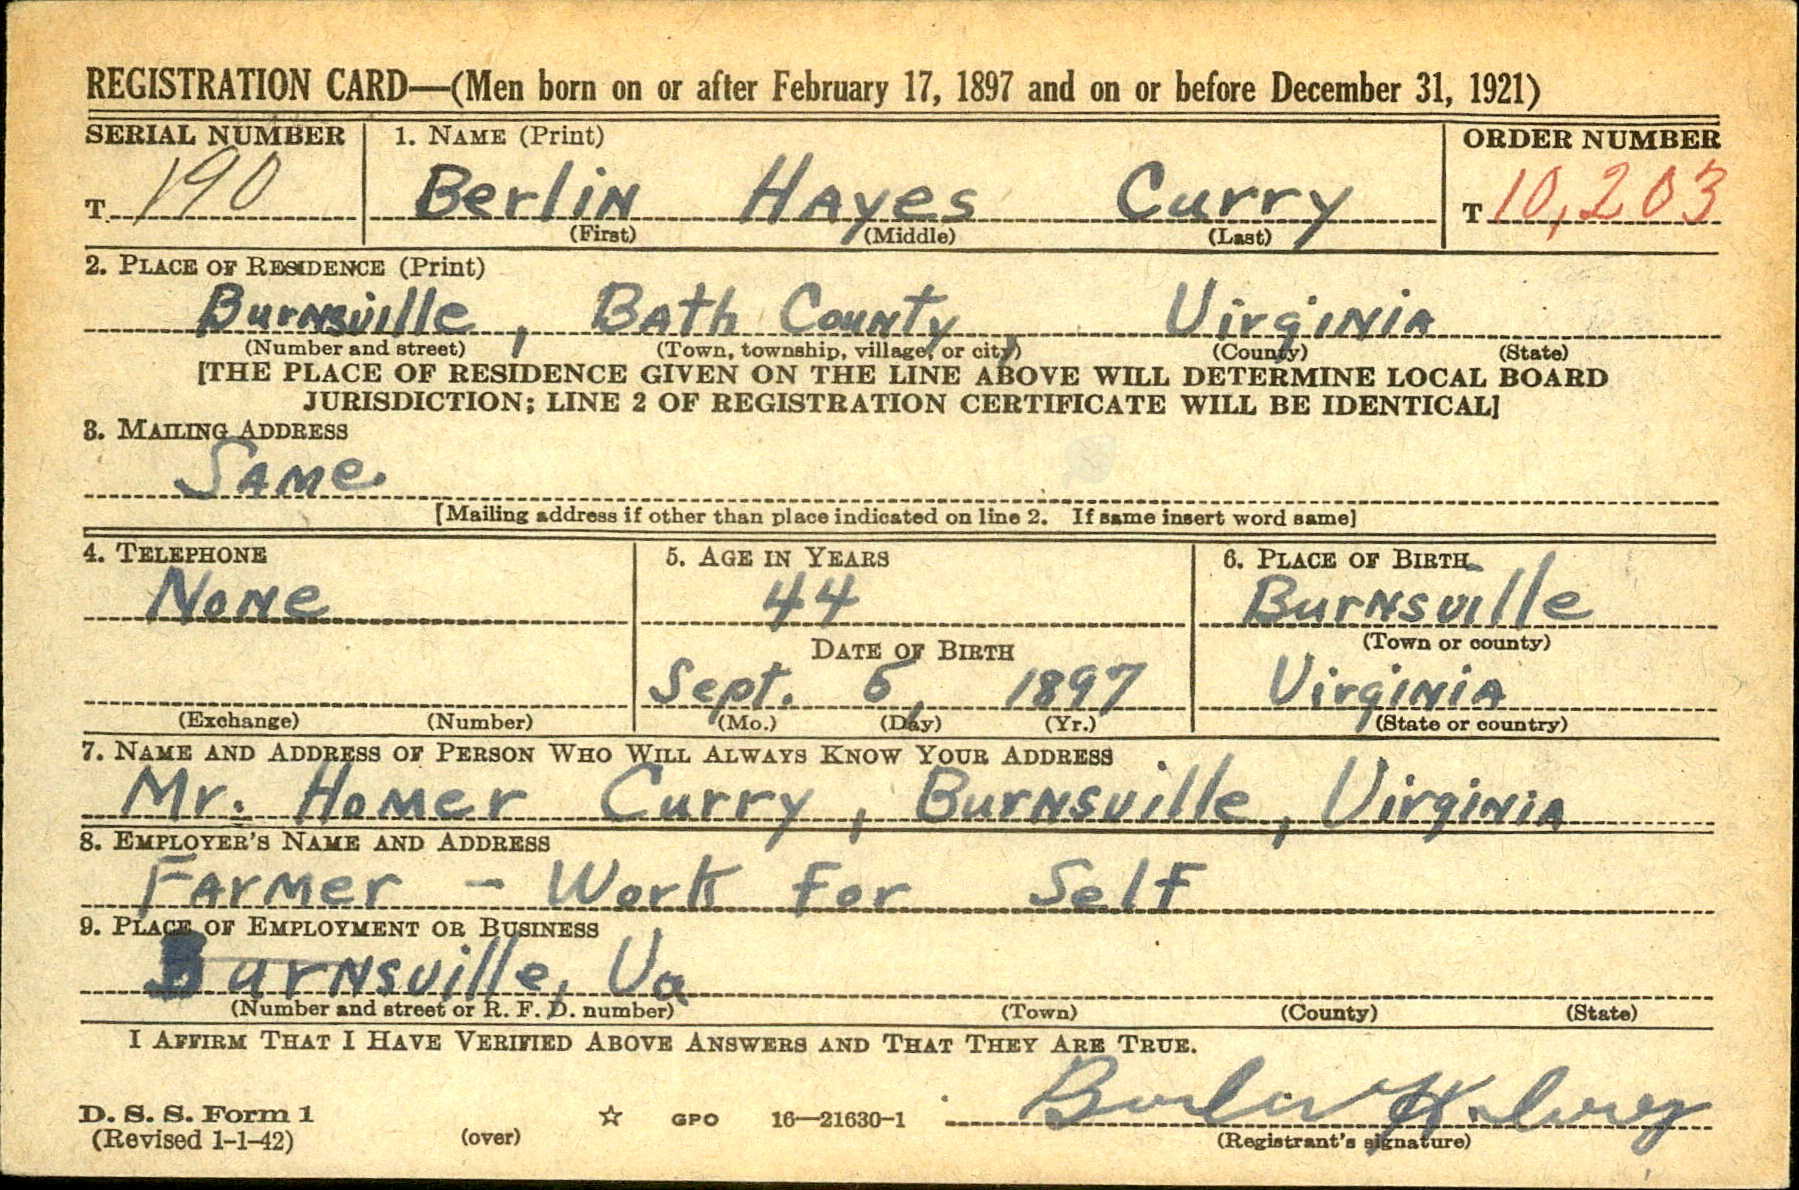 REGISTRATION CARD—(Men born on or after February 17, 1897 and on or before December 31, 1921)
SERIAL NUMBER 1. NAME (Print) ORDER NUMBER
T 190 Berlin Hayes Curry T 10,203
(First) (Middle) (Last)
2. PLACE OF RESIDENCE (Print)
Burnsville, Bath County, Virginia
(Number and street) (Town, township, village, or city) (County) (State)
[THE PLACE OF RESIDENCE GIVEN ON THE LINE ABOVE WILL DETERMINE LOCAL BOARD
JURISDICTION; LINE 2 OF REGISTRATION CERTIFICATE WILL BE IDENTICAL]
3. MAILING ADDRESS
Same
[Mailing address if other than place indicated on line 2. If same insert word same]
4. TELEPHONE 5. AGE IN YEARS 6. PLACE OF BIRTH
None 44 Burnsville
DATE OF BIRTH (Town or county)
Sept. 5, 1897 Virginia
(Exchange) (Number) (Mo.) (Day) (Yr.) (State or country)
7. NAME AND ADDRESS OF PERSON WHO WILL ALWAYS KNOW YOUR ADDRESS
Mr. Homer Curry, Burnsville, Virginia
8. EMPLOYER'S NAME AND ADDRESS
Farmer - Work For Self
9. PLACE OF EMPLOYMENT OR BUSINESS
Burnsville, Va
(Number and street or R. F. D. number) (Town) (County) (State)
I AFFIRM THAT I HAVE VERIFIED ABOVE ANSWERS AND THAT THEY ARE TRUE.
Berlin H. Curry
D. S. S. Form 1 GPO 16—21630-1
(Revised 1-1-42) (over) (Registrant's signature)